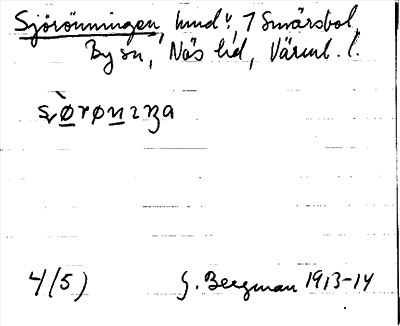 Sjörönningen, hmd v, 7 Smårsbol,
By sn, Näs hd, Värml. l.
4/(5) G. Bergman 1913-14